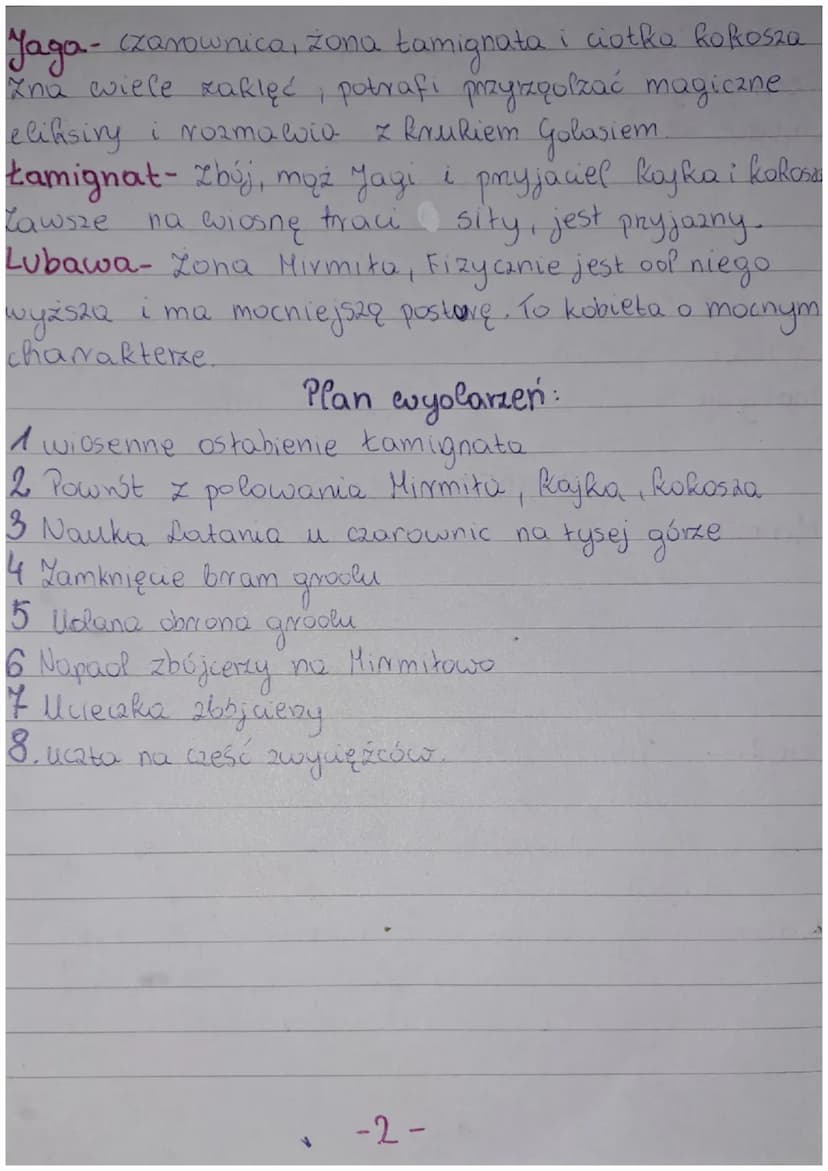 Jaga- czarownica, żona łamignata i ciotka kokosza
zna wiele zaklęć, potrafi przyrządzać magiczne
eliksiry i rozmawia z krukiem Golasiem
Łamignat- zbój, mąż Jagi i przyjaciel kajka i kokosz
zawsze na wiosnę traci siły, jest przyjazny.
Lubawa- Żona Mirmiła, Fizycznie jest od niego
wyższa i ma mocniejszą postawę. To kobieta o mocnym
charakterze.
Plan wydarzeń:
1 wiosenne osłabienie łamignata
2 Powrót z polowania Mirmiła, kajka, kokosza
3 Nauka latania u czarownic na łysej górze
4 Zamknięcie bram grodu
5 Udana obrona grodu
6 Napad zbójcerzy na Mirmiłowo
7 Ucieczka zbójcerzy
8. uczta na cześć zwycięźców.
-2-